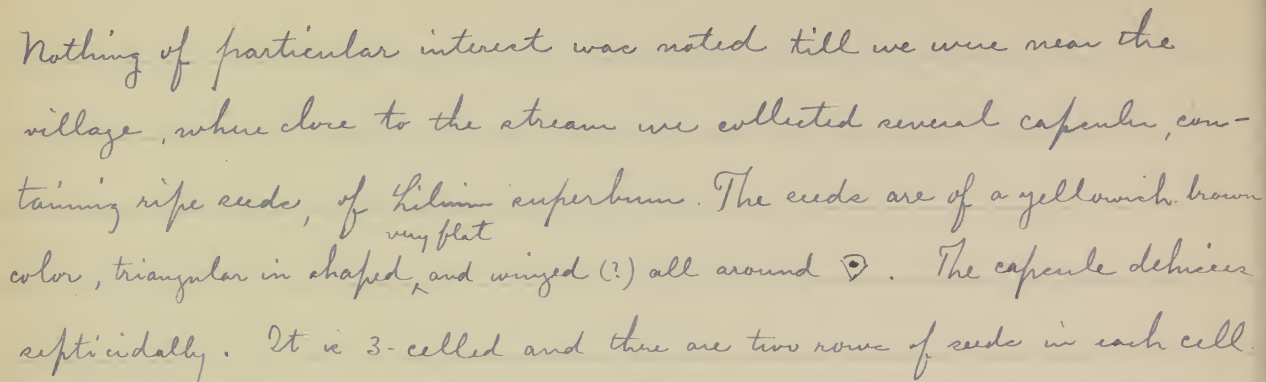 Nothing of particular interest was noted till we were near the
village, where close to the stream we collected several capsules, con-
taining ripe seeds, of Lilium superbum. The seeds are of a yellowish brown
very flat
color, triangular in shaped, and winged (?) all around . The capsule dehisces
septicidally. It is 3-celled and there are two rows of seeds in each cell.